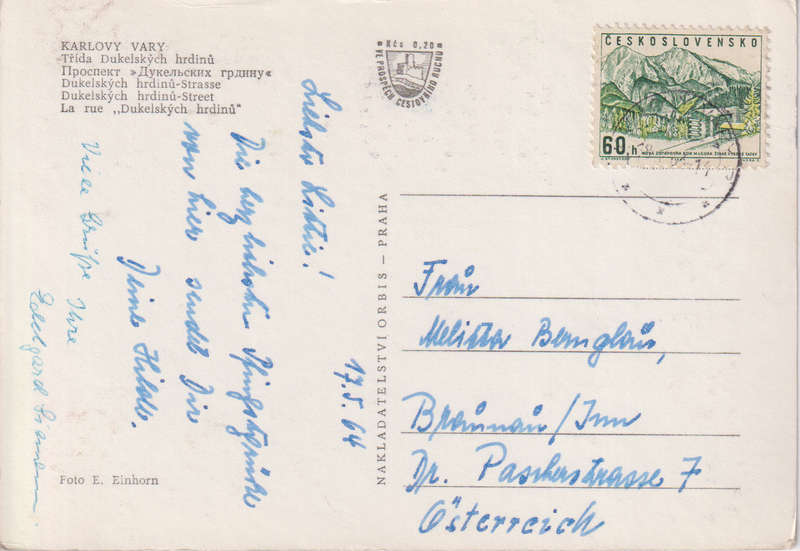 KARLOVY VARY
Třída Dukelských hrdinů
Проспект »Дукельских грдину«
Dukelských hrdinů-Strasse
Dukelských hrdinů-Street
La rue ,,Dukelských hrdinů"
Kčs 0,20
VE PROSPĚCH CESTOVNÍHO RUCHU
ČESKOSLOVENSKO
60 h
17.5.64
Die herzlichsten Pfingstgrüße
von hier sendet Dir
Deine Hilde.
Viele Grüße Ihre
Foto E. Einhorn
NAKLADATELSTVÍ ORBIS – PRAHA
Frau
Melitta Bernglau,
Braunau/Inn
Dr. Pascherstrasse 7
Österreich